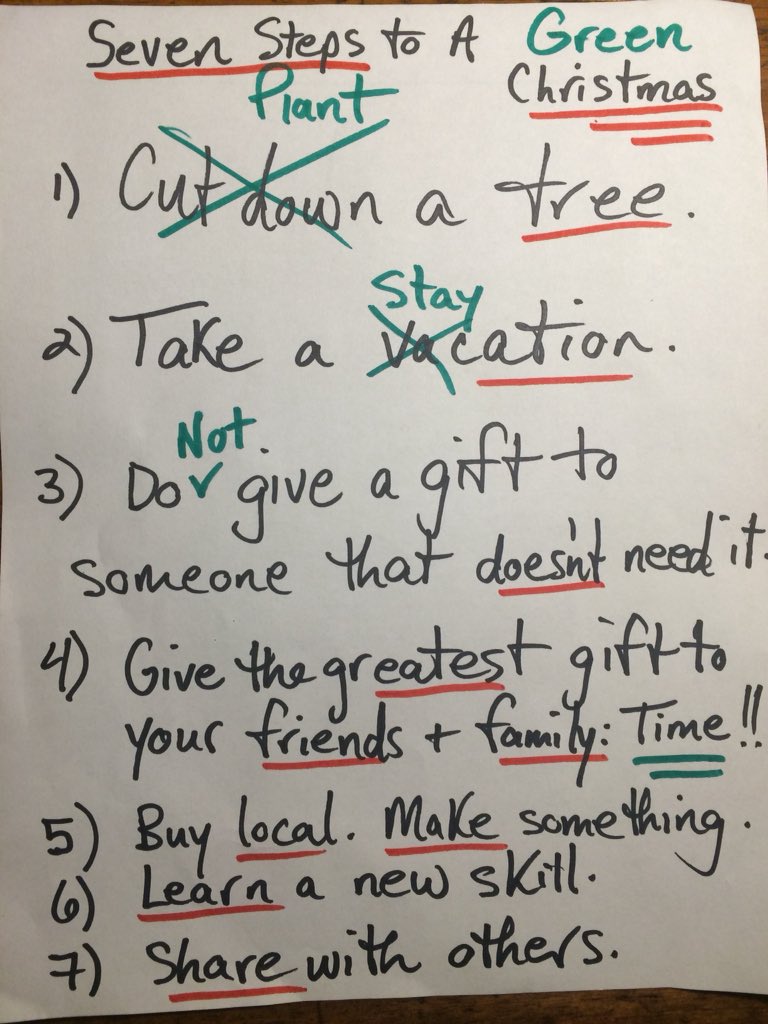 Seven Steps to A Green
Christmas
Plant
1) Cut down a tree.
Stay
2) Take a vacation.
Not
3) Do ✓ give a gift to
someone that doesn't need it.
4) Give the greatest gift to
your friends + family: Time!!
5) Buy local. Make something.
6) Learn a new skill.
7) Share with others.